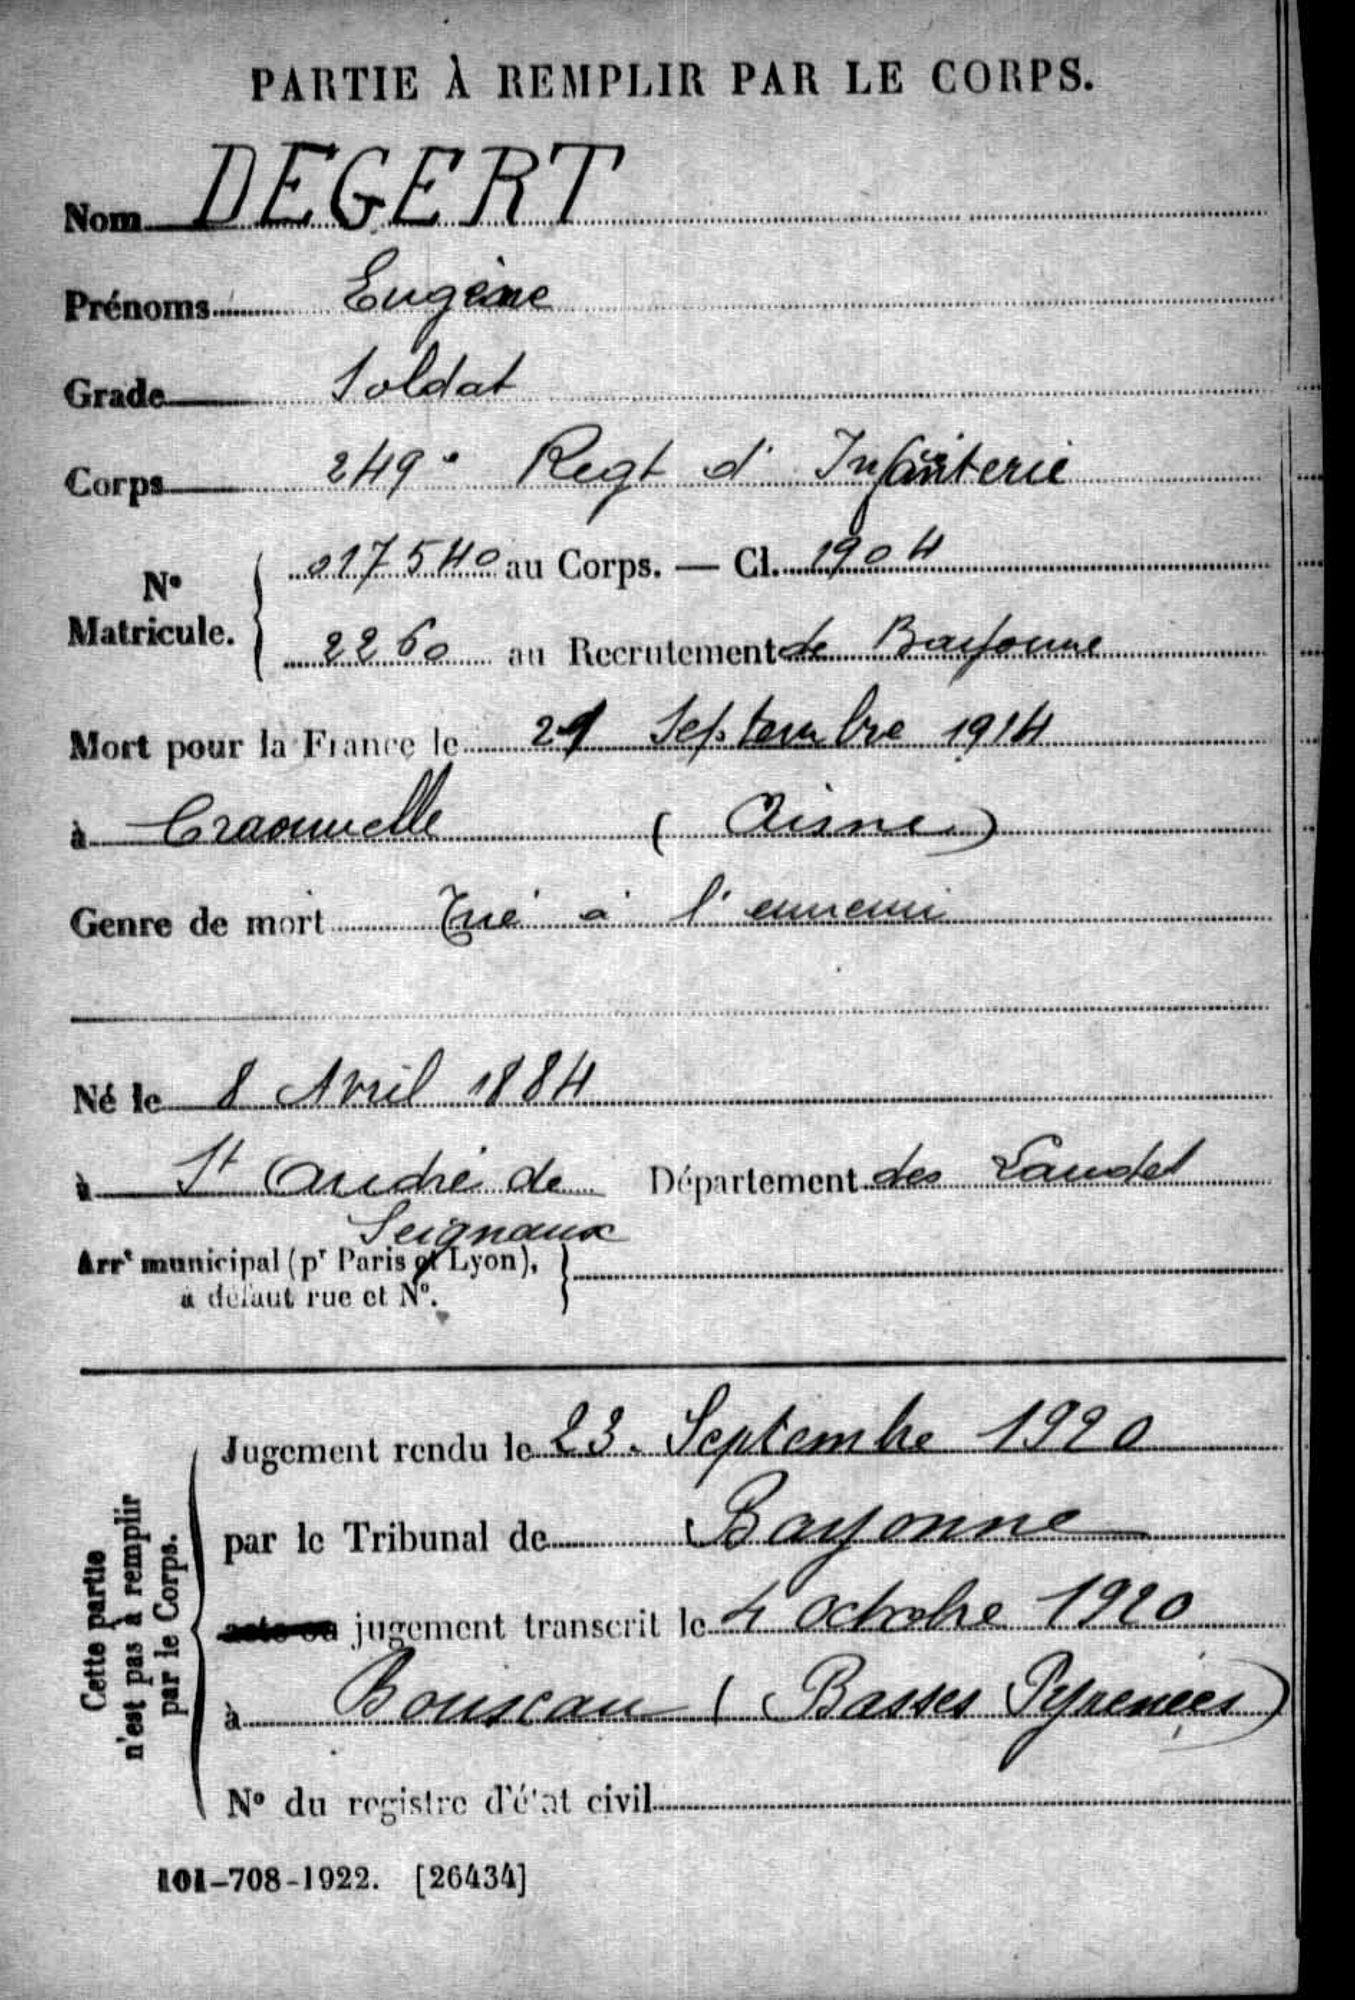 PARTIE À REMPLIR PAR LE CORPS.
Nom DEGERT
Prénoms Eugène
Grade Soldat
Corps 249e Regt d'Infanterie
No Matricule. { 017540 au Corps. — Cl. 1904
2260 au Recrutement de Bayonne
Mort pour la France le 21 Septembre 1914
à Craonnelle (Aisne)
Genre de mort Tué à l'ennemi
Né le 8 Avril 1884
à St André de Département des Landes
Seignaux
Arrt municipal (pr Paris et Lyon), }
à défaut rue et No.
Cette partie
n'est pas à remplir
par le Corps.
Jugement rendu le 23 Septembre 1920
par le Tribunal de Bayonne
acte ou jugement transcrit le 4 octobre 1920
à Bouscau (Basses Pyrenées)
No du registre d'état civil
101-708-1922. [26434]